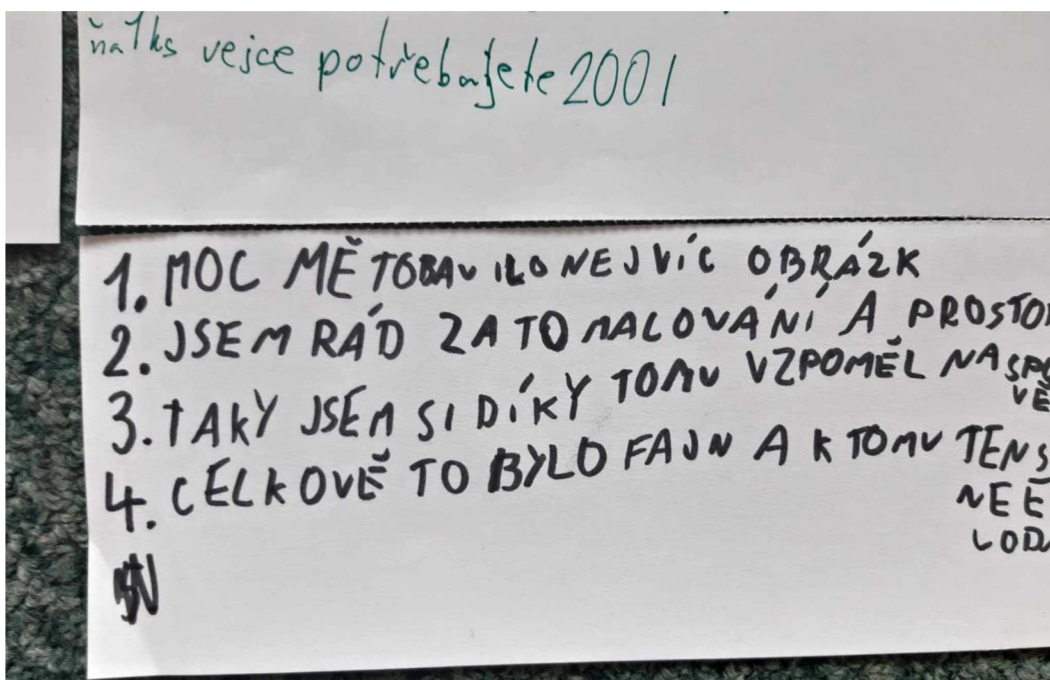 na 1ks vejce potřebujete 200 l
1. MOC MĚ TOBAVILO NEJVÍC OBRÁZK
2. JSEM RÁD ZA TO MALOVÁNÍ A PROSTO
3. TAKY JSEM SI DÍKY TOMU VZPOMĚL NA SPO
VĚ
4. CELKOVĚ TO BYLO FAJN A K TOMU TEN S
NEE
LOD